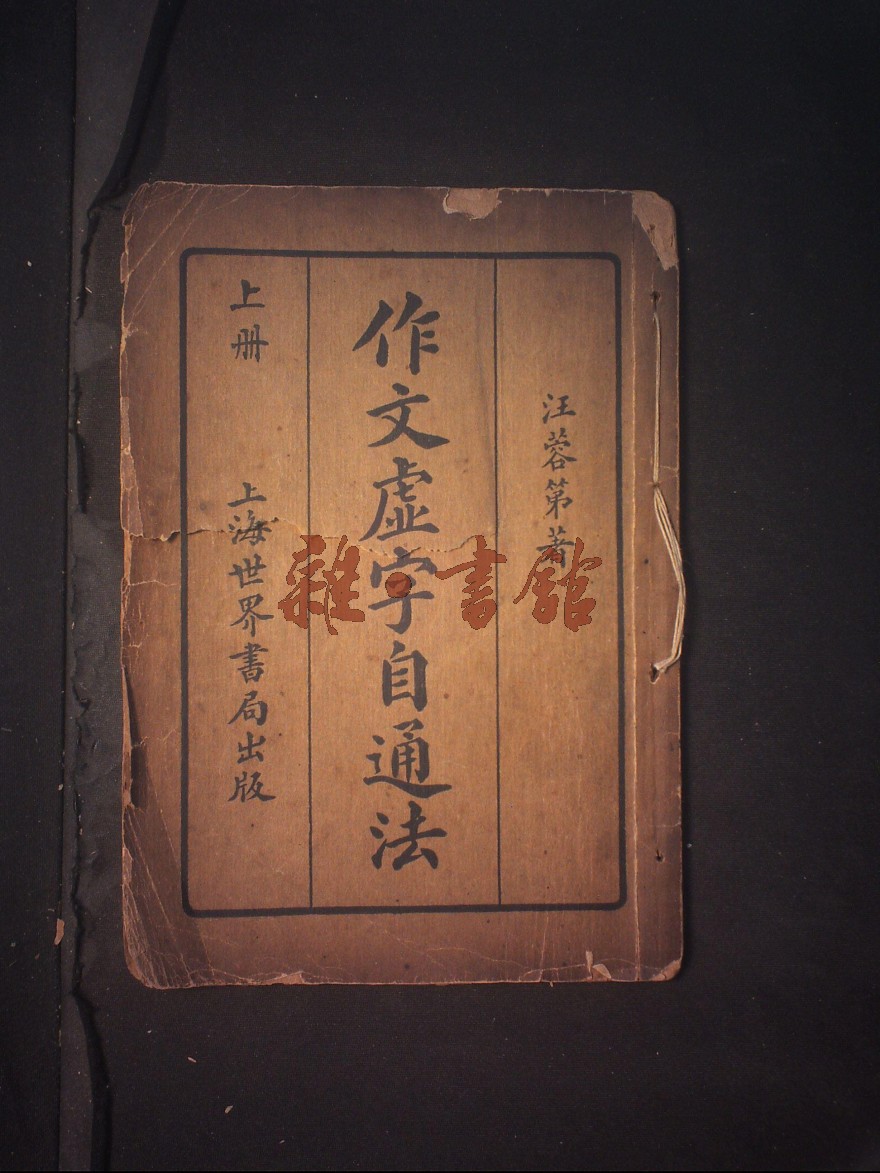 汪蓉第著
作文虛字自通法
上册
上海世界書局出版
雜·書館